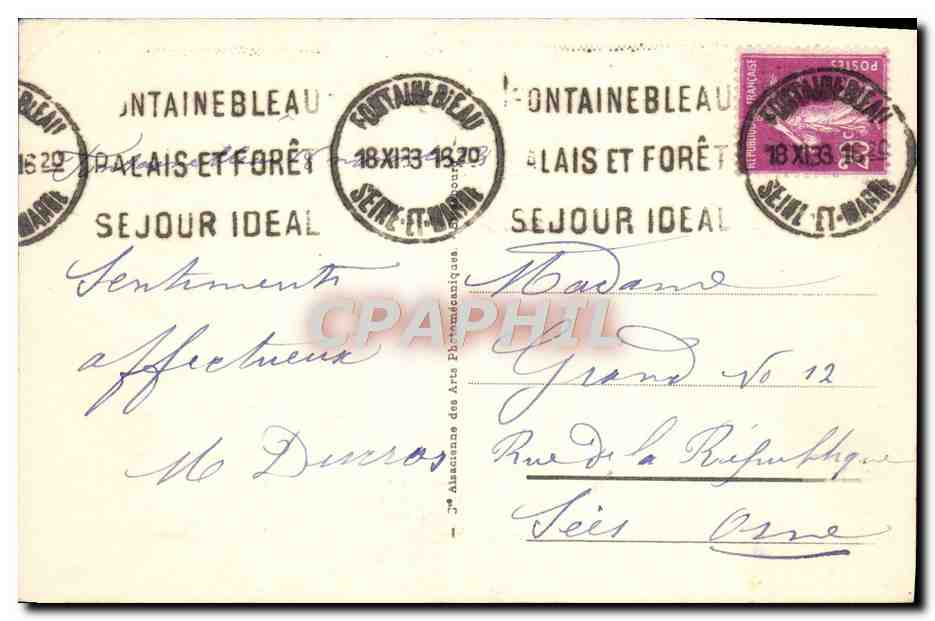 FONTAINEBLEAU
PALAIS ET FORÊT
SEJOUR IDEAL
FONTAINEBLEAU
18 XI 33 18 20
SEINE-ET-MARNE
FONTAINEBLEAU
PALAIS ET FORÊT
SEJOUR IDEAL
FONTAINEBLEAU
18 XI 33 18 20
SEINE-ET-MARNE
BLEAU
18 20
MARNE
RÉPUBLIQUE FRANÇAISE
POSTES
20c
Sentiments
affectueux
M Ducros
Alsacienne des Arts Photomécaniques
Madame
Grand No 12
Rue de la République
Séès Orne
CPAPHIL